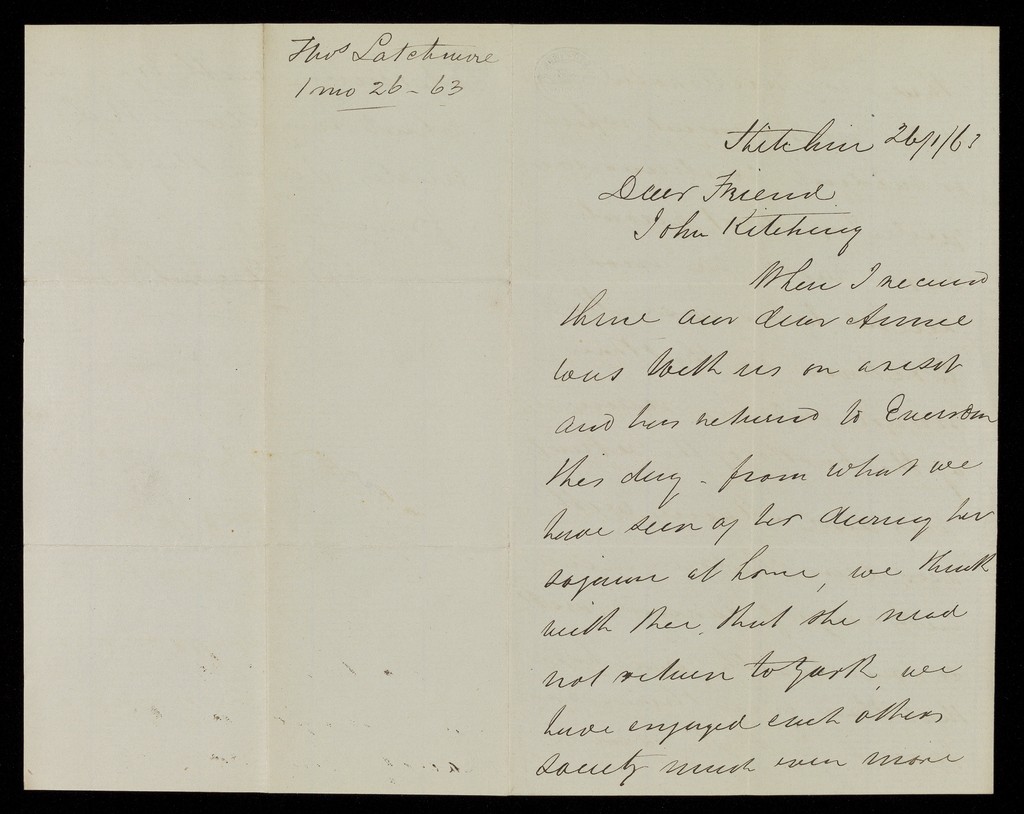 Thos Latchmore
1 mo 26 - 63
Hitchin 26/1/63
Dear Friend
John Kitching
When I received
thine our dear Annie
was with us on a visit
and has returned to
this day - from what we
have seen of her during her
sojourn at home, we think
with thee, that she need
not return to York, we
have enjoyed each others
society much even more